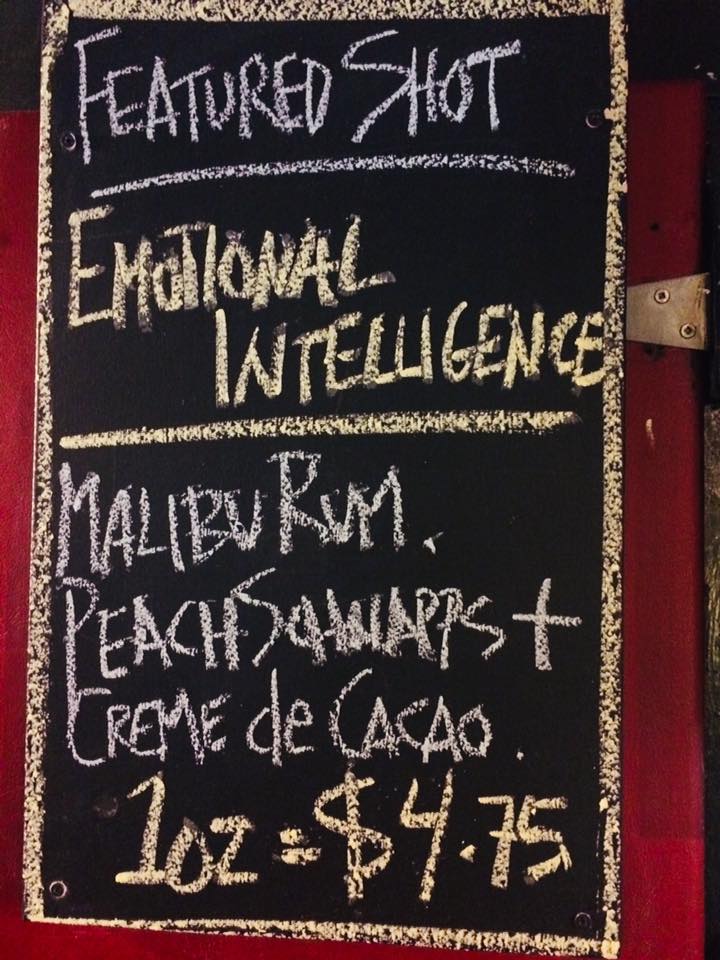 FEATURED SHOT
EMOTIONAL
INTELLIGENCE
MALIBU RUM.
PEACH SCHNAPPS +
CREME de CACAO.
1oz = $4.75